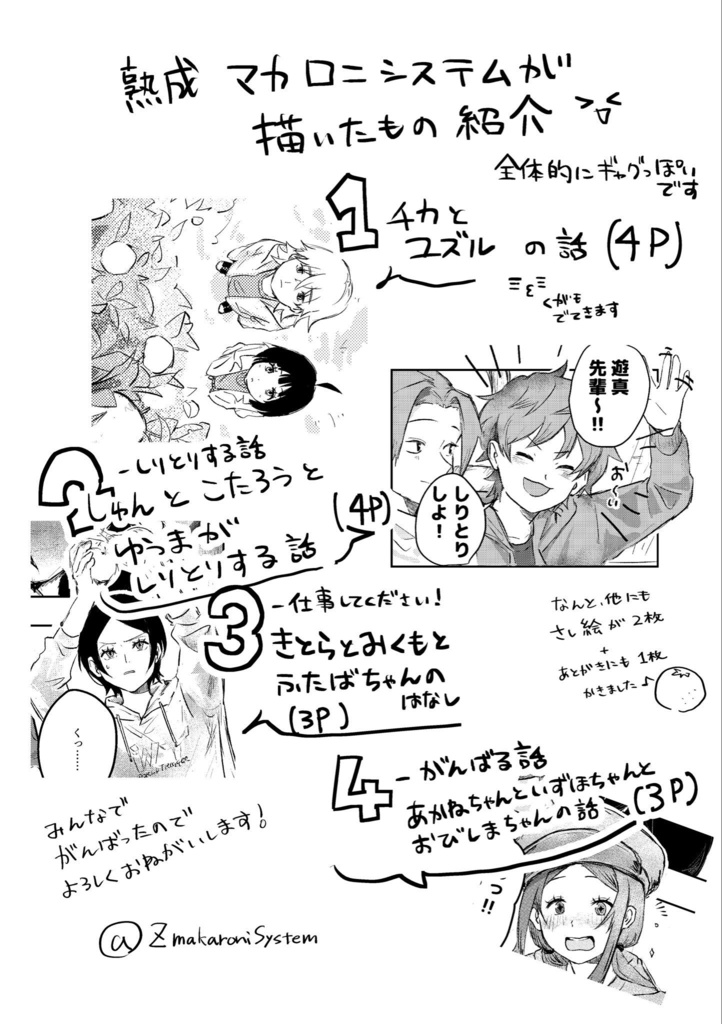 熟成 マカロニシステムが
描いたもの 紹介
全体的にギャグっぽい
です
1 チカと
ユズル の話 (4P)
くがも
でてきます
遊真
先輩〜!!
お〜い
しりとり
しよ！
2 -しりとりする話
しゅんと こたろうと
ゆうまが
しりとりする話
(4P)
3 -仕事してください!
きとらとみくもと
ふたばちゃんの
はなし
(3P)
くっ……
なんと、他にも
さし絵が2枚
+
あとがきにも1枚
かきました♪
4 -がんばる話
あかねちゃんといずほちゃんと
おびしまちゃんの話 (3P)
っ!!
みんなで
がんばったので
よろしくおねがいします!
@ZmakaroniSystem